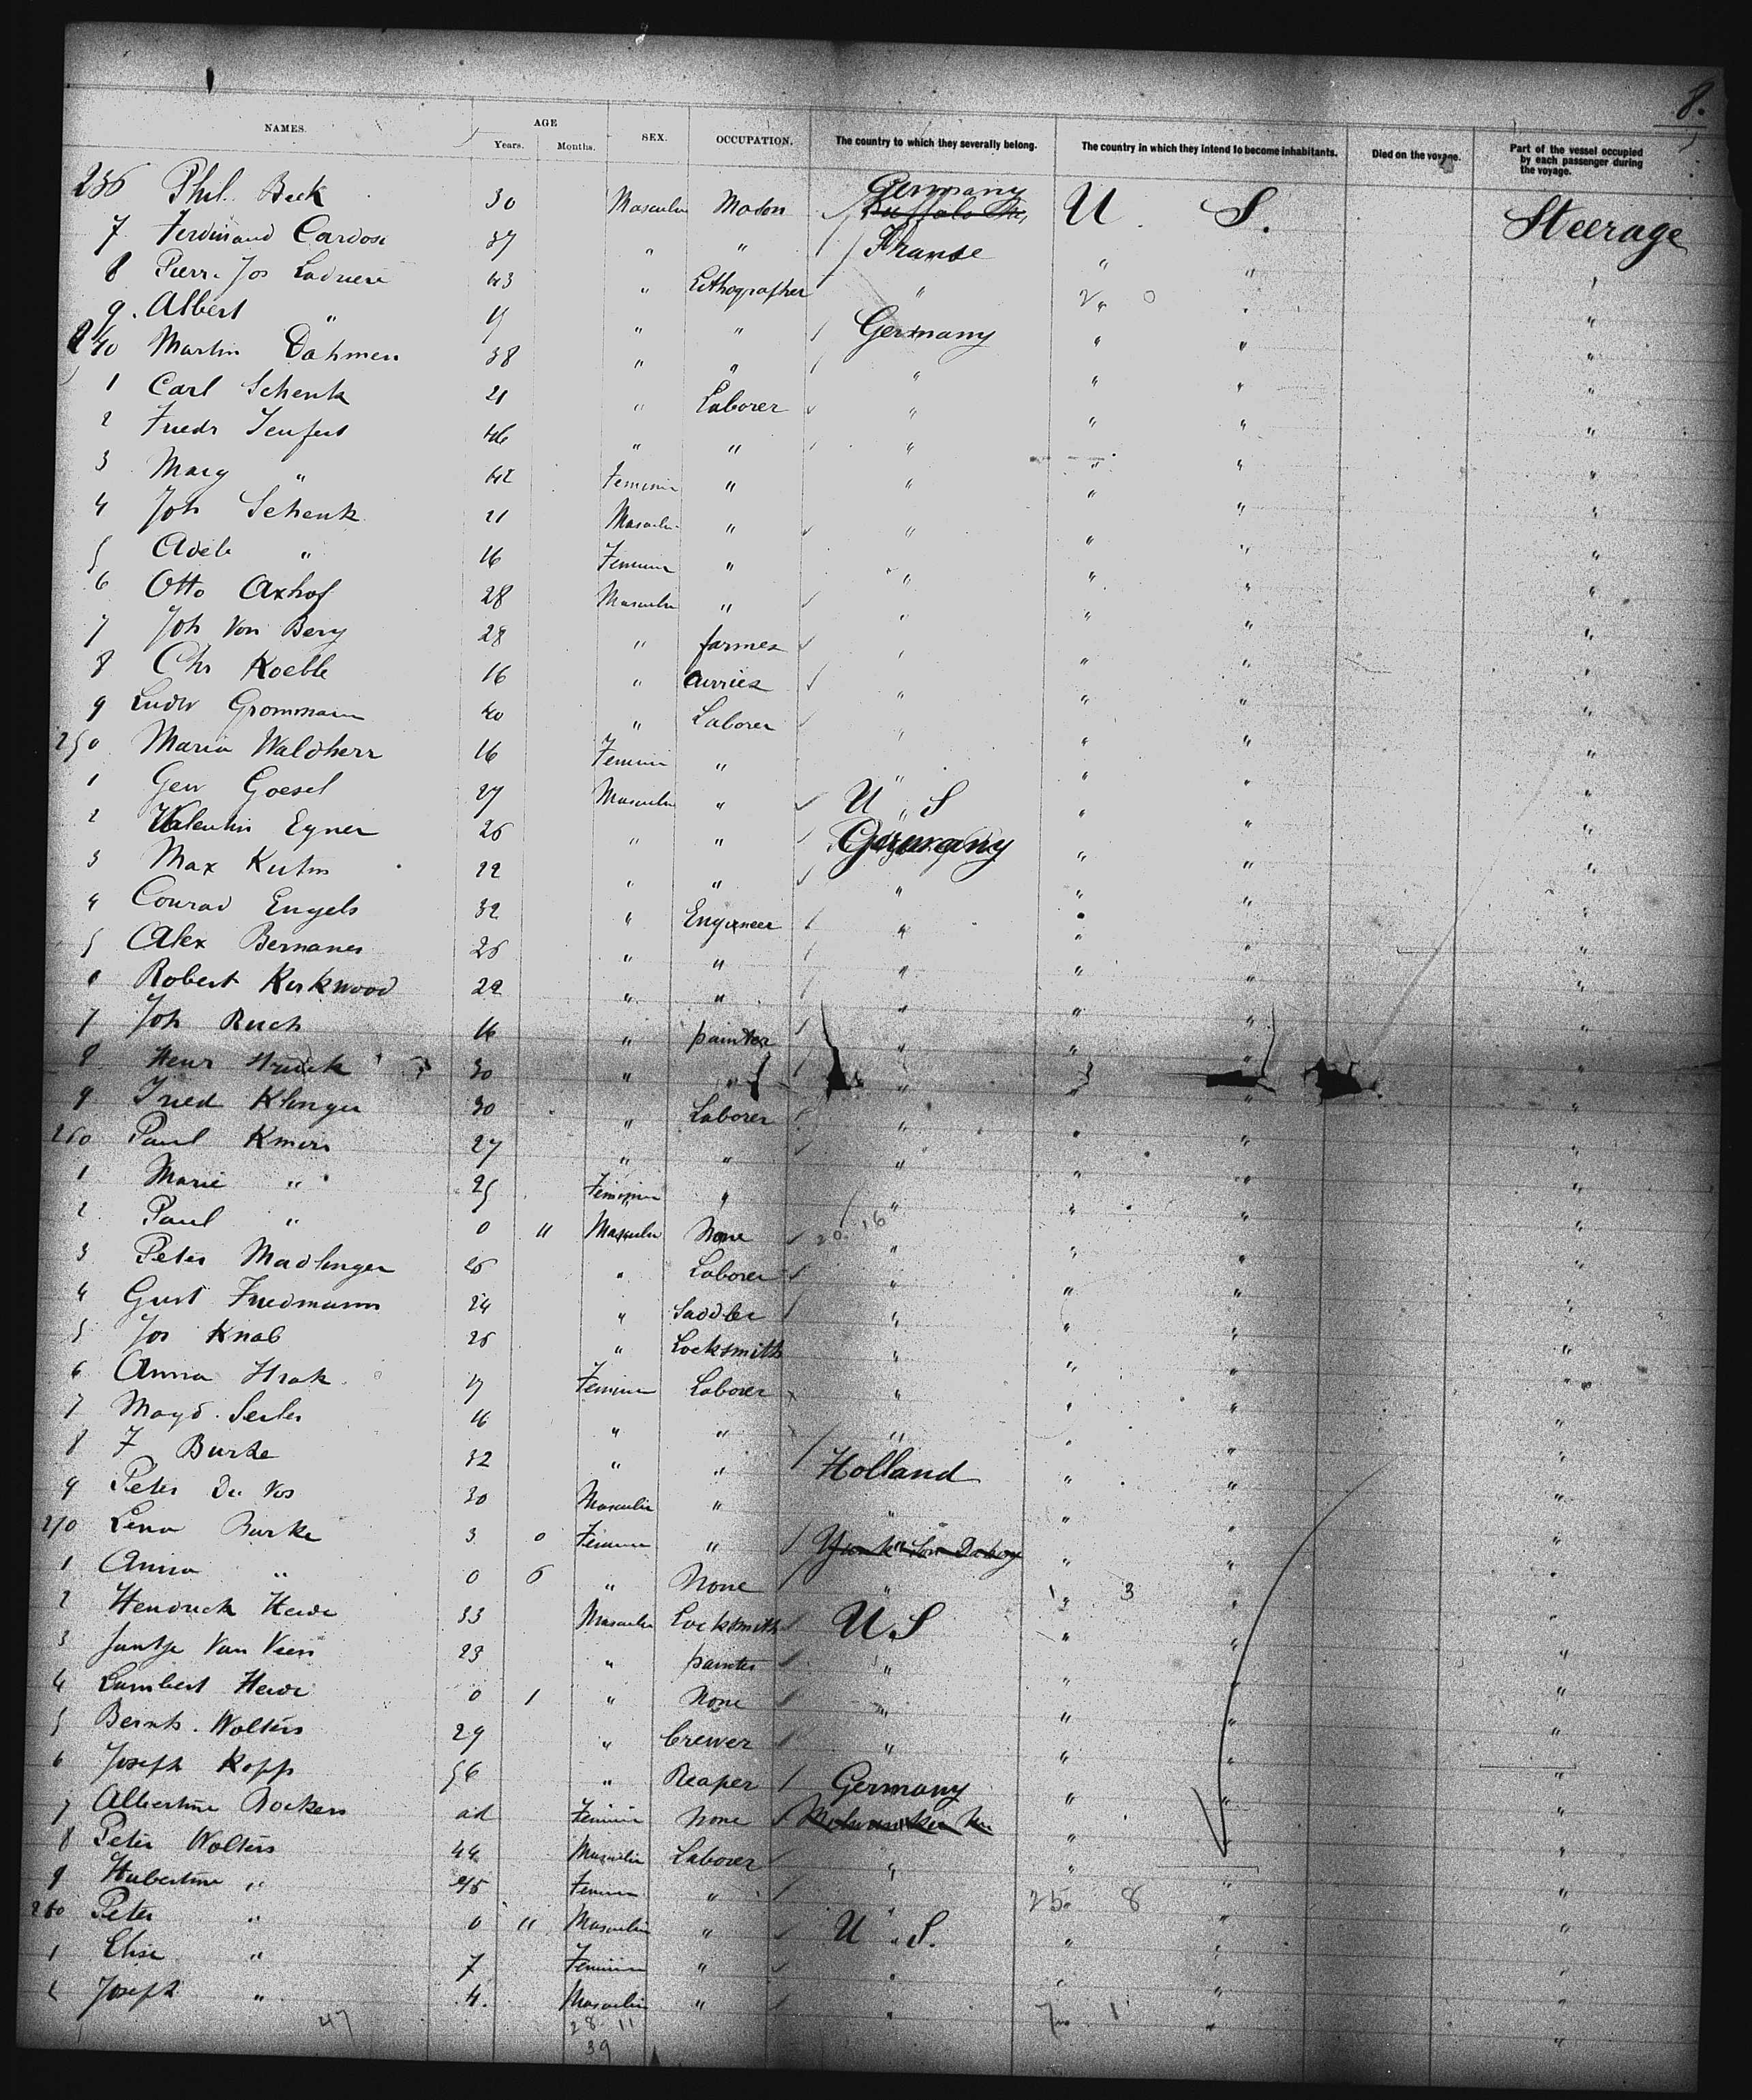 8.
NAMES. AGE Years. Months. SEX. OCCUPATION. The country to which they severally belong. The country in which they intend to become inhabitants. Died on the voyage. Part of the vessel occupied by each passenger during the voyage.
236 Phil. Beck 30 Masculin Mason Germany U. S. Steerage
7 Ferdinand Cardosi 37 " " Franse " "
8 Pierr. Jos Ladriere 43 " Lithographer " " "
9. Albert " 19 " " Germany " " "
240 Martin Dahmen 38 " " " " " "
1 Carl Schenk 21 " Laborer " " " "
2 Friedr 46 " " " " " "
3 Mary " 42 Feminin " " " " "
4 Joh Schenk 21 Masculin " " " " "
5 Adele " 16 Feminin " " " " "
6 Otto Axhof 28 Masculin " " " " "
7 Joh Von Berg 28 " farmer " " " "
8 Chr Koeble 16 " Currier " " " "
9 Ludw Grommann 40 " Laborer " " " "
250 Maria Waldherr 16 Feminin " " " " "
1 Geor Goesel 27 Masculin " U S " " "
2 Valentin Egner 26 " " Germany " " "
3 Max Kuhn 22 " " " " " "
4 Conrad Engels 32 " Engineer " " " "
5 Alex Bernanes 26 " " " " " "
6 Robert Kirkwood 22 " " " " " "
7 Joh Ruch 16 " painter " " " "
8 Henr 30 " " " " " "
9 Fried Klinger 30 " Laborer " " " "
260 Paul Kmen 27 " " " " " "
1 Marie " 25 Feminin " " " " "
2 Paul " 0 11 Masculin None " " " "
3 Peter Madlinger 26 " Laborer " " " "
4 Gust Friedmann 24 " Saddler " " " "
5 Jos Knab 25 " Locksmith " " " "
6 Anna Hrak 17 Feminin Laborer " " " "
7 Magd. Seiler 16 " " " " " "
8 F Burke 32 " " Holland " " "
9 Peter De Vos 30 Masculin " " " " "
270 Lena Burke 3 0 Feminin " " " "
1 Anna " 0 6 " None " " 3 " "
2 Hendrick Heide 33 Masculin Locksmith U S " " "
3 Jantje Van Veen 23 " painter " " " "
4 Lambert Heide 0 1 " None " " " "
5 Bernh. Wolters 29 " brewer " " " "
6 Joseph Kopp 56 " Reaper Germany " " "
7 Albertine Rockers ad Feminin None " " "
8 Peter Wolters 44 Masculin Laborer " " " "
9 Hubertine " 45 Feminin " " 25 8 " "
280 Peter " 0 11 Masculin " U. S. " " "
1 Elise " 7 Feminin " " " " "
2 Joseph " 4. Masculin " " " " "
47 28 11 7 1
39